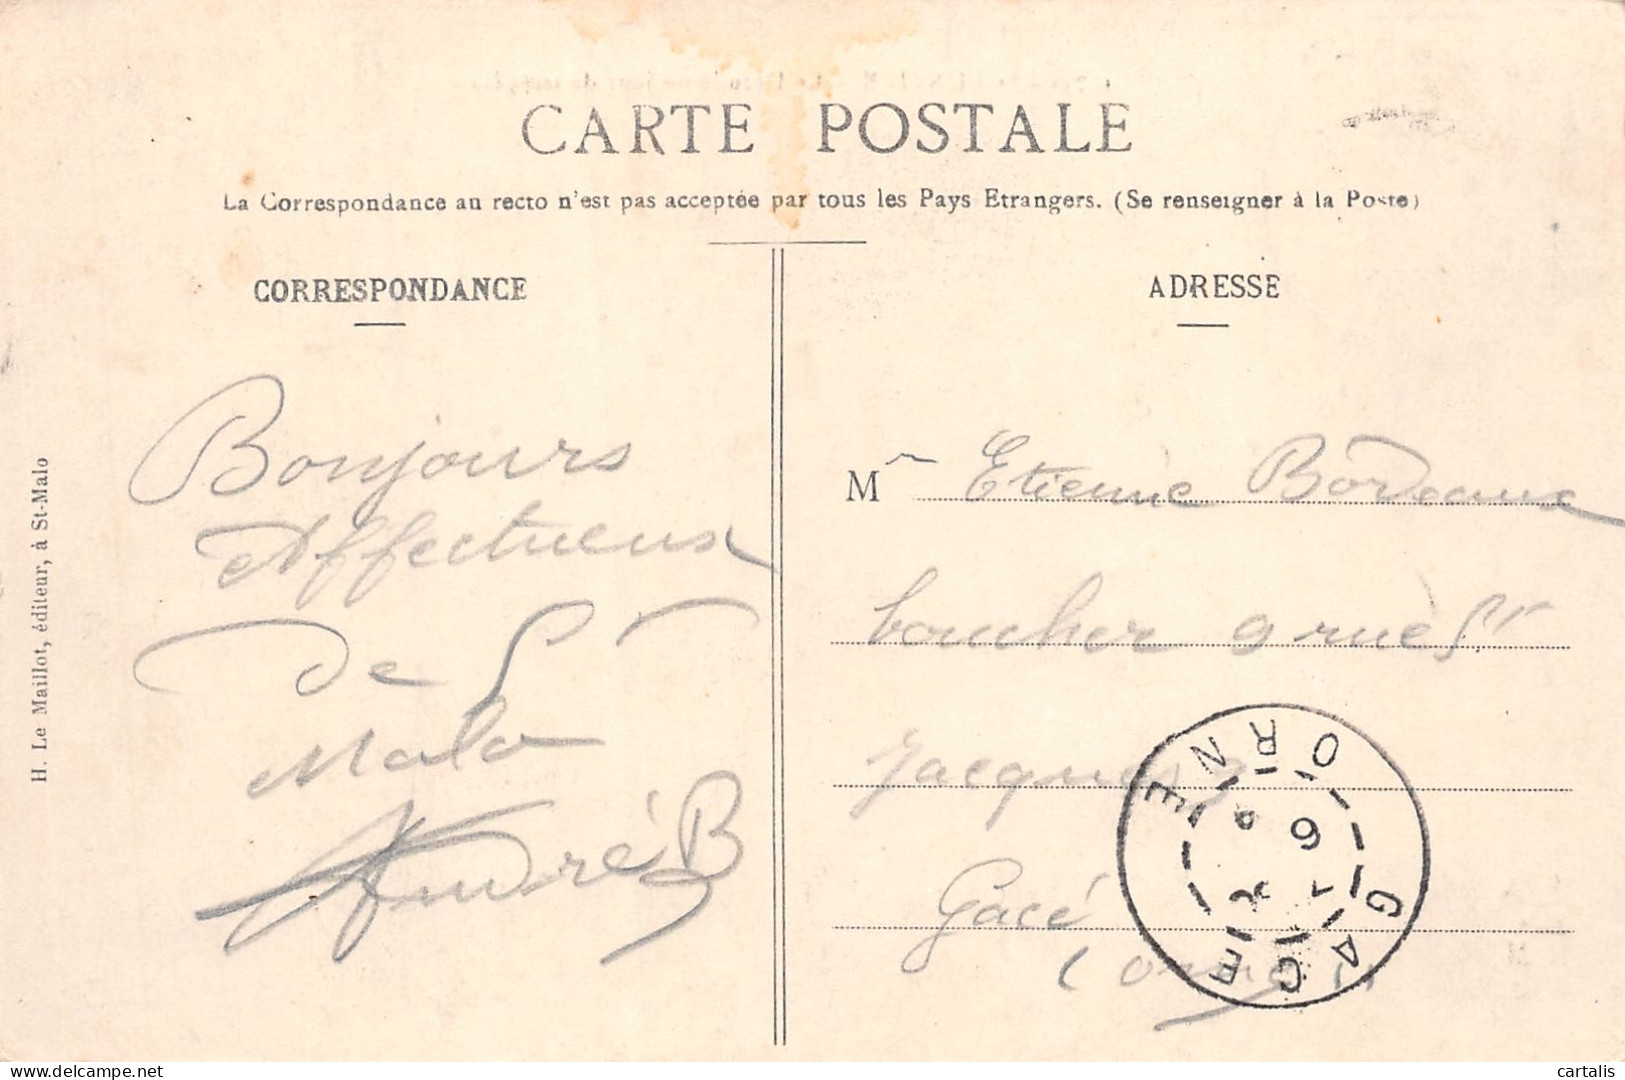 CARTE POSTALE
La Correspondance au recto n'est pas acceptée par tous les Pays Etrangers. (Se renseigner à la Poste)
CORRESPONDANCE
Bonjours
Affectueux
De St
Malo
André B
H. Le Maillot, éditeur, à St-Malo
ADRESSE
Mr Etienne Bordeaux
boucher 9 rue St
Jacques
Gacé
(Orne)
GACE
ORNE
cartalis
delcampe.net